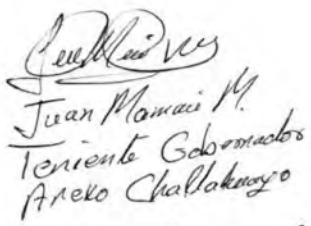 Juan Mamani M.
Teniente Gobernador
Anexo Challakuyo